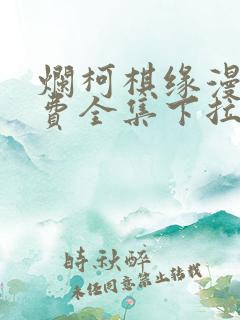 爛柯棋缘漫
费全集下拉
時秋醉
未经同意禁止转载